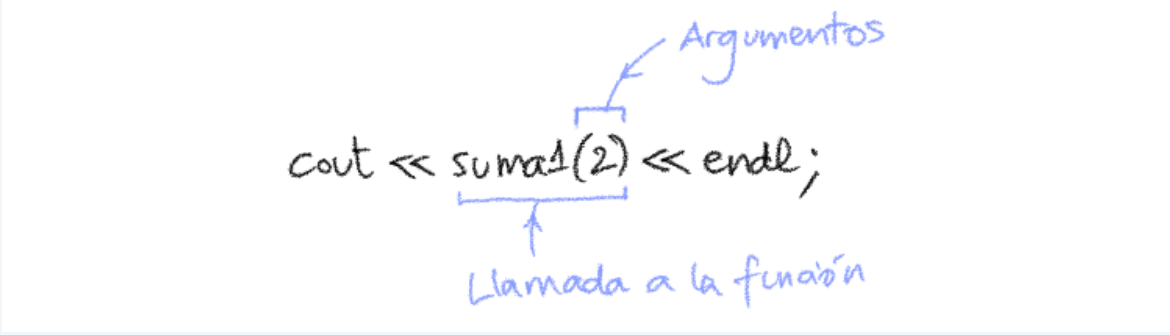 Argumentos
cout << suma1(2) << endl;
Llamada a la función